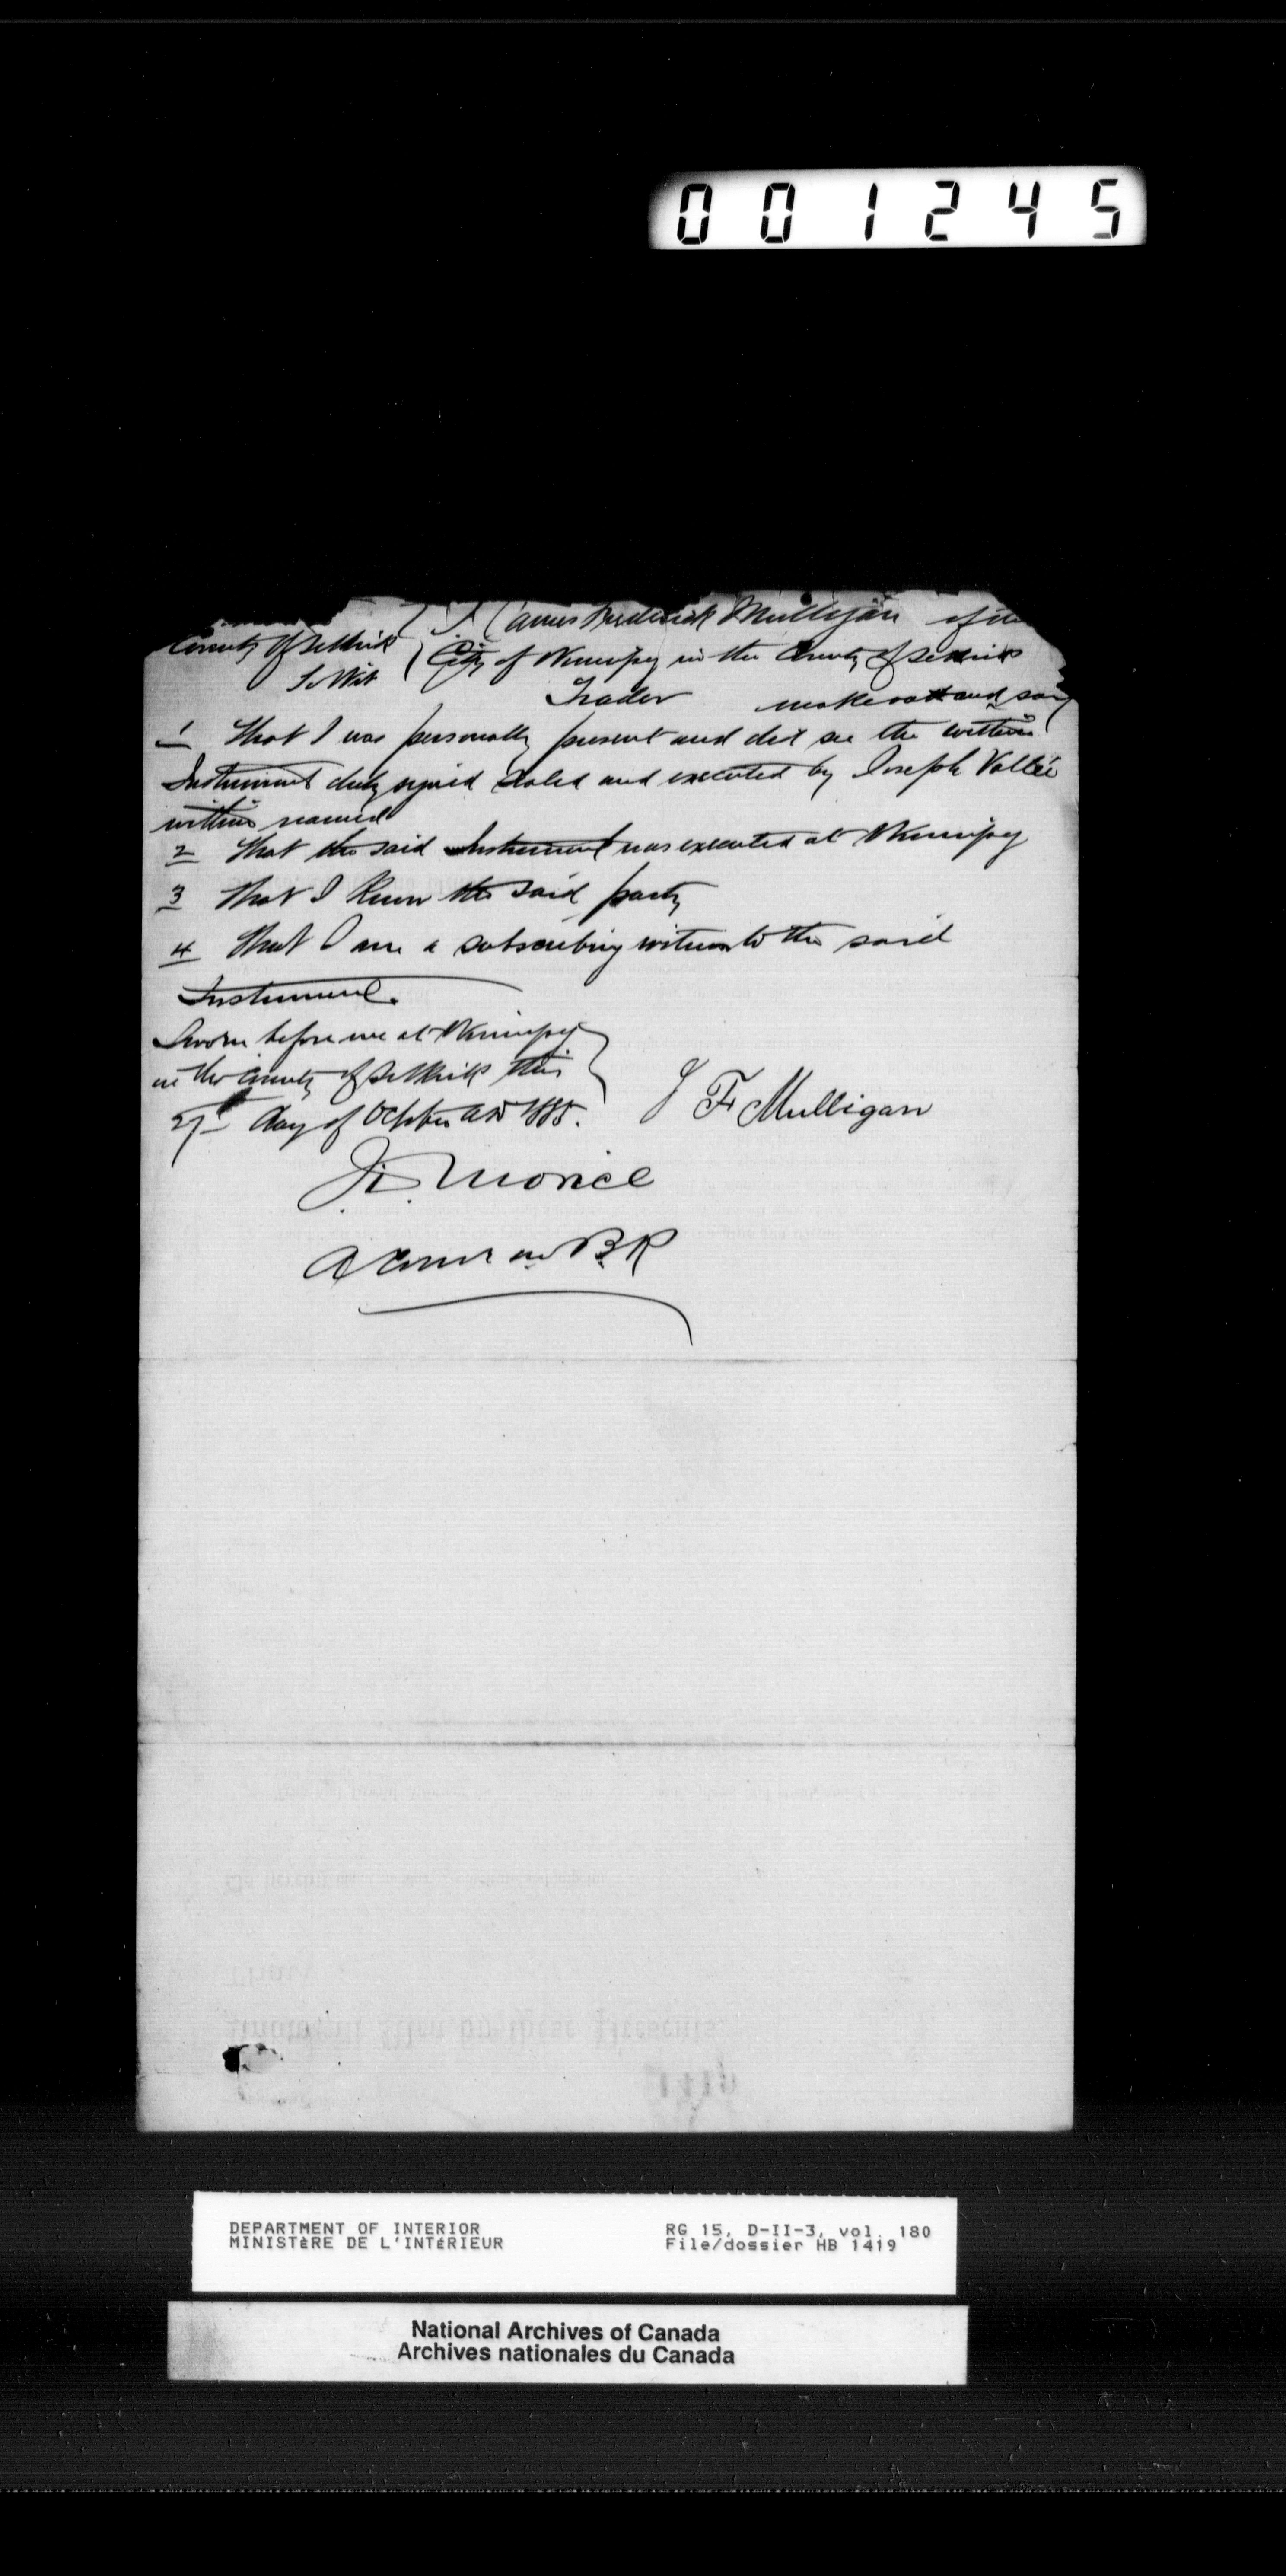 001245
I James Frederick Mulligan of the
County of Selkirk City of Winnipeg in the County of Selkirk
To Wit Trader make oath and say
1 That I was personally present and did see the within
Instrument duly signed sealed and executed by Joseph Vallée
within named
2 That the said Instrument was executed at Winnipeg
3 That I know the said party
4 That I am a subscribing witness to the said
Instrument.
Sworn before me at Winnipeg
in the County of Selkirk this
27th day of October AD 1885.
J F Mulligan
A Comr in B.R
DEPARTMENT OF INTERIOR
MINISTÈRE DE L'INTÉRIEUR
RG 15, D-II-3, vol. 180
File/dossier HB 1419
National Archives of Canada
Archives nationales du Canada